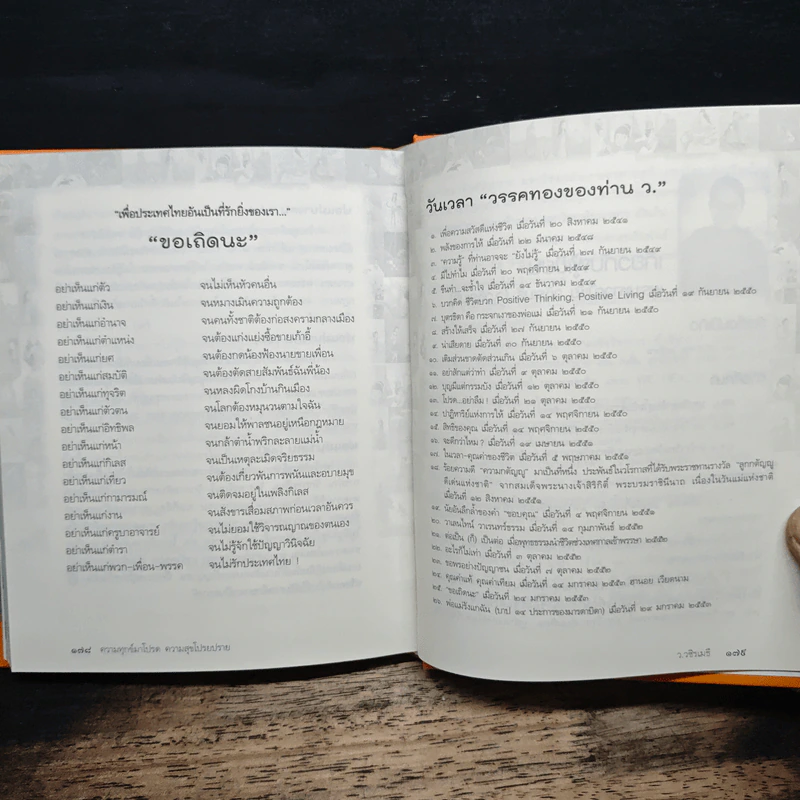 "เพื่อประเทศไทยอันเป็นที่รักยิ่งของเรา..."
"ขอเถิดนะ"
อย่าเห็นแก่ตัว จนไม่เห็นหัวคนอื่น
อย่าเห็นแก่เงิน จนหมางเมินความถูกต้อง
อย่าเห็นแก่อำนาจ จนคนทั้งชาติต้องก่อสงครามกลางเมือง
อย่าเห็นแก่ตำแหน่ง จนต้องแก่งแย่งซื้อขายเก้าอี้
อย่าเห็นแก่ยศ จนต้องกดน้องฟ้องนายขายเพื่อน
อย่าเห็นแก่สมบัติ จนต้องตัดสายสัมพันธ์ฉันพี่น้อง
อย่าเห็นแก่ทุจริต จนหลงผิดโกงบ้านกินเมือง
อย่าเห็นแก่ตัวตน จนโลกต้องหมุนวนตามใจฉัน
อย่าเห็นแก่อิทธิพล จนยอมให้พาลชนอยู่เหนือกฎหมาย
อย่าเห็นแก่หน้า จนกล้าตำน้ำพริกละลายแม่น้ำ
อย่าเห็นแก่กิเลส จนเป็นเหตุละเมิดจริยธรรม
อย่าเห็นแก่เที่ยว จนต้องเกี่ยวพันการพนันและอบายมุข
อย่าเห็นแก่กามารมณ์ จนติดจมอยู่ในเพลิงกิเลส
อย่าเห็นแก่งาน จนสังขารเสื่อมสภาพก่อนเวลาอันควร
อย่าเห็นแก่ครูบาอาจารย์ จนไม่ยอมใช้วิจารณญาณของตนเอง
อย่าเห็นแก่ตำรา จนไม่รู้จักใช้ปัญญาวินิจฉัย
อย่าเห็นแก่พวก-เพื่อน-พรรค จนไม่รักประเทศไทย !
๑๗๘ ความทุกข์มาโปรด ความสุขโปรยปราย
วันเวลา "วรรคทองของท่าน ว."
๑. เพื่อความสวัสดีแห่งชีวิต เมื่อวันที่ ๒๐ สิงหาคม ๒๕๔๑
๒. พลังของการให้ เมื่อวันที่ ๒๒ มีนาคม ๒๕๔๘
๓. "ความรู้" ที่ท่านอาจจะ "ยังไม่รู้" เมื่อวันที่ ๒๗ กันยายน ๒๕๔๙
๔. มีไปทำไม เมื่อวันที่ ๒๐ พฤศจิกายน ๒๕๔๙
๕. ขืนทำ...จะช้ำใจ เมื่อวันที่ ๑๔ ธันวาคม ๒๕๔๙
๖. บวกคิด ชีวิตบวก Positive Thinking, Positive Living เมื่อวันที่ ๑๙ กันยายน ๒๕๕๐
๗. บุตรธิดา คือ กระจกเงาของพ่อแม่ เมื่อวันที่ ๒๑ กันยายน ๒๕๕๐
๘. สร้างให้เสร็จ เมื่อวันที่ ๒๗ กันยายน ๒๕๕๐
๙. น่าเสียดาย เมื่อวันที่ ๓๐ กันยายน ๒๕๕๐
๑๐. เติมส่วนขาดตัดส่วนเกิน เมื่อวันที่ ๖ ตุลาคม ๒๕๕๐
๑๑. อย่าสักแต่ว่าทำ เมื่อวันที่ ๙ ตุลาคม ๒๕๕๐
๑๒. บุญมีแต่กรรมบัง เมื่อวันที่ ๑๒ ตุลาคม ๒๕๕๐
๑๓. โปรด...อย่าลืม ! เมื่อวันที่ ๒๑ ตุลาคม ๒๕๕๐
๑๔. ปาฏิหาริย์แห่งการให้ เมื่อวันที่ ๑๔ พฤศจิกายน ๒๕๕๐
๑๕. สิทธิของคุณ เมื่อวันที่ ๑๔ พฤศจิกายน ๒๕๕๐
๑๖. จะดีกว่าไหม ? เมื่อวันที่ ๑๙ เมษายน ๒๕๕๑
๑๗. ในเวลา-คุณค่าของชีวิต เมื่อวันที่ ๕ พฤษภาคม ๒๕๕๑
๑๘. ร้อยความดี "ความกตัญญู" มาเป็นที่หนึ่ง ประพันธ์ในวโรกาสที่ได้รับพระราชทานรางวัล "ลูกกตัญญู
ดีเด่นแห่งชาติ" จากสมเด็จพระนางเจ้าสิริกิติ์ พระบรมราชินีนาถ เนื่องในวันแม่แห่งชาติ
เมื่อวันที่ ๑๒ สิงหาคม ๒๕๕๑
๑๙. นัยอันลึกล้ำของคำ "ขอบคุณ" เมื่อวันที่ ๔ พฤศจิกายน ๒๕๕๑
๒๐. วาเลนไทน์ วาเรนทร์ธรรม เมื่อวันที่ ๑๔ กุมภาพันธ์ ๒๕๕๒
๒๑. ต่อเป็น (ก็) เป็นต่อ เมื่อพุทธธรรมนำชีวิตช่วงเทศกาลเข้าพรรษา ๒๕๕๒
๒๒. อะไรก็ไม่เท่า เมื่อวันที่ ๓ ตุลาคม ๒๕๕๒
๒๓. ขอพรอย่างปัญญาชน เมื่อวันที่ ๗ ตุลาคม ๒๕๕๒
๒๔. คุณค่าแท้ คุณค่าเทียม เมื่อวันที่ ๑๔ มกราคม ๒๕๕๓ ฮานอย เวียดนาม
๒๕. "ขอเถิดนะ" เมื่อวันที่ ๒๔ มกราคม ๒๕๕๓
๒๖. พ่อแม่รังแกฉัน (บาป ๑๔ ประการของมารดาบิดา) เมื่อวันที่ ๒๙ มกราคม ๒๕๕๓
ว.วชิรเมธี ๑๗๙